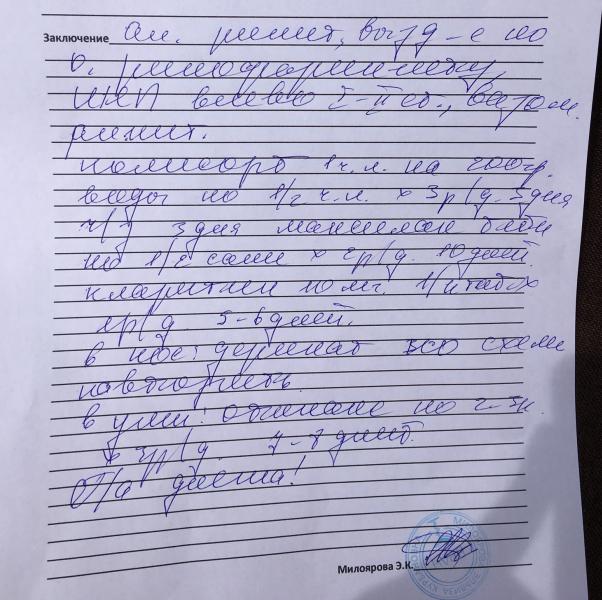 Заключение Ал. ринит, возд-е по
о. ринофарингиту,
ИКП влево I-II ст., вазом.
ринит.
полисорб 1 ч.л. на 200гр.
воды по 1/2 ч.л. х 3р/д. 3дня
ч/з 3дня максилак бэби
по 1/2 саше х 2р/д. 10дней.
кларитин 10мг. 1/4таб х
1р/д. 5-6дней.
в нос: деринат по схеме
повторить.
в уши: отипакс по 2-3к.
х 3р/д. 7-8 дней.
Г/а диета!
Милоярова Э.К.